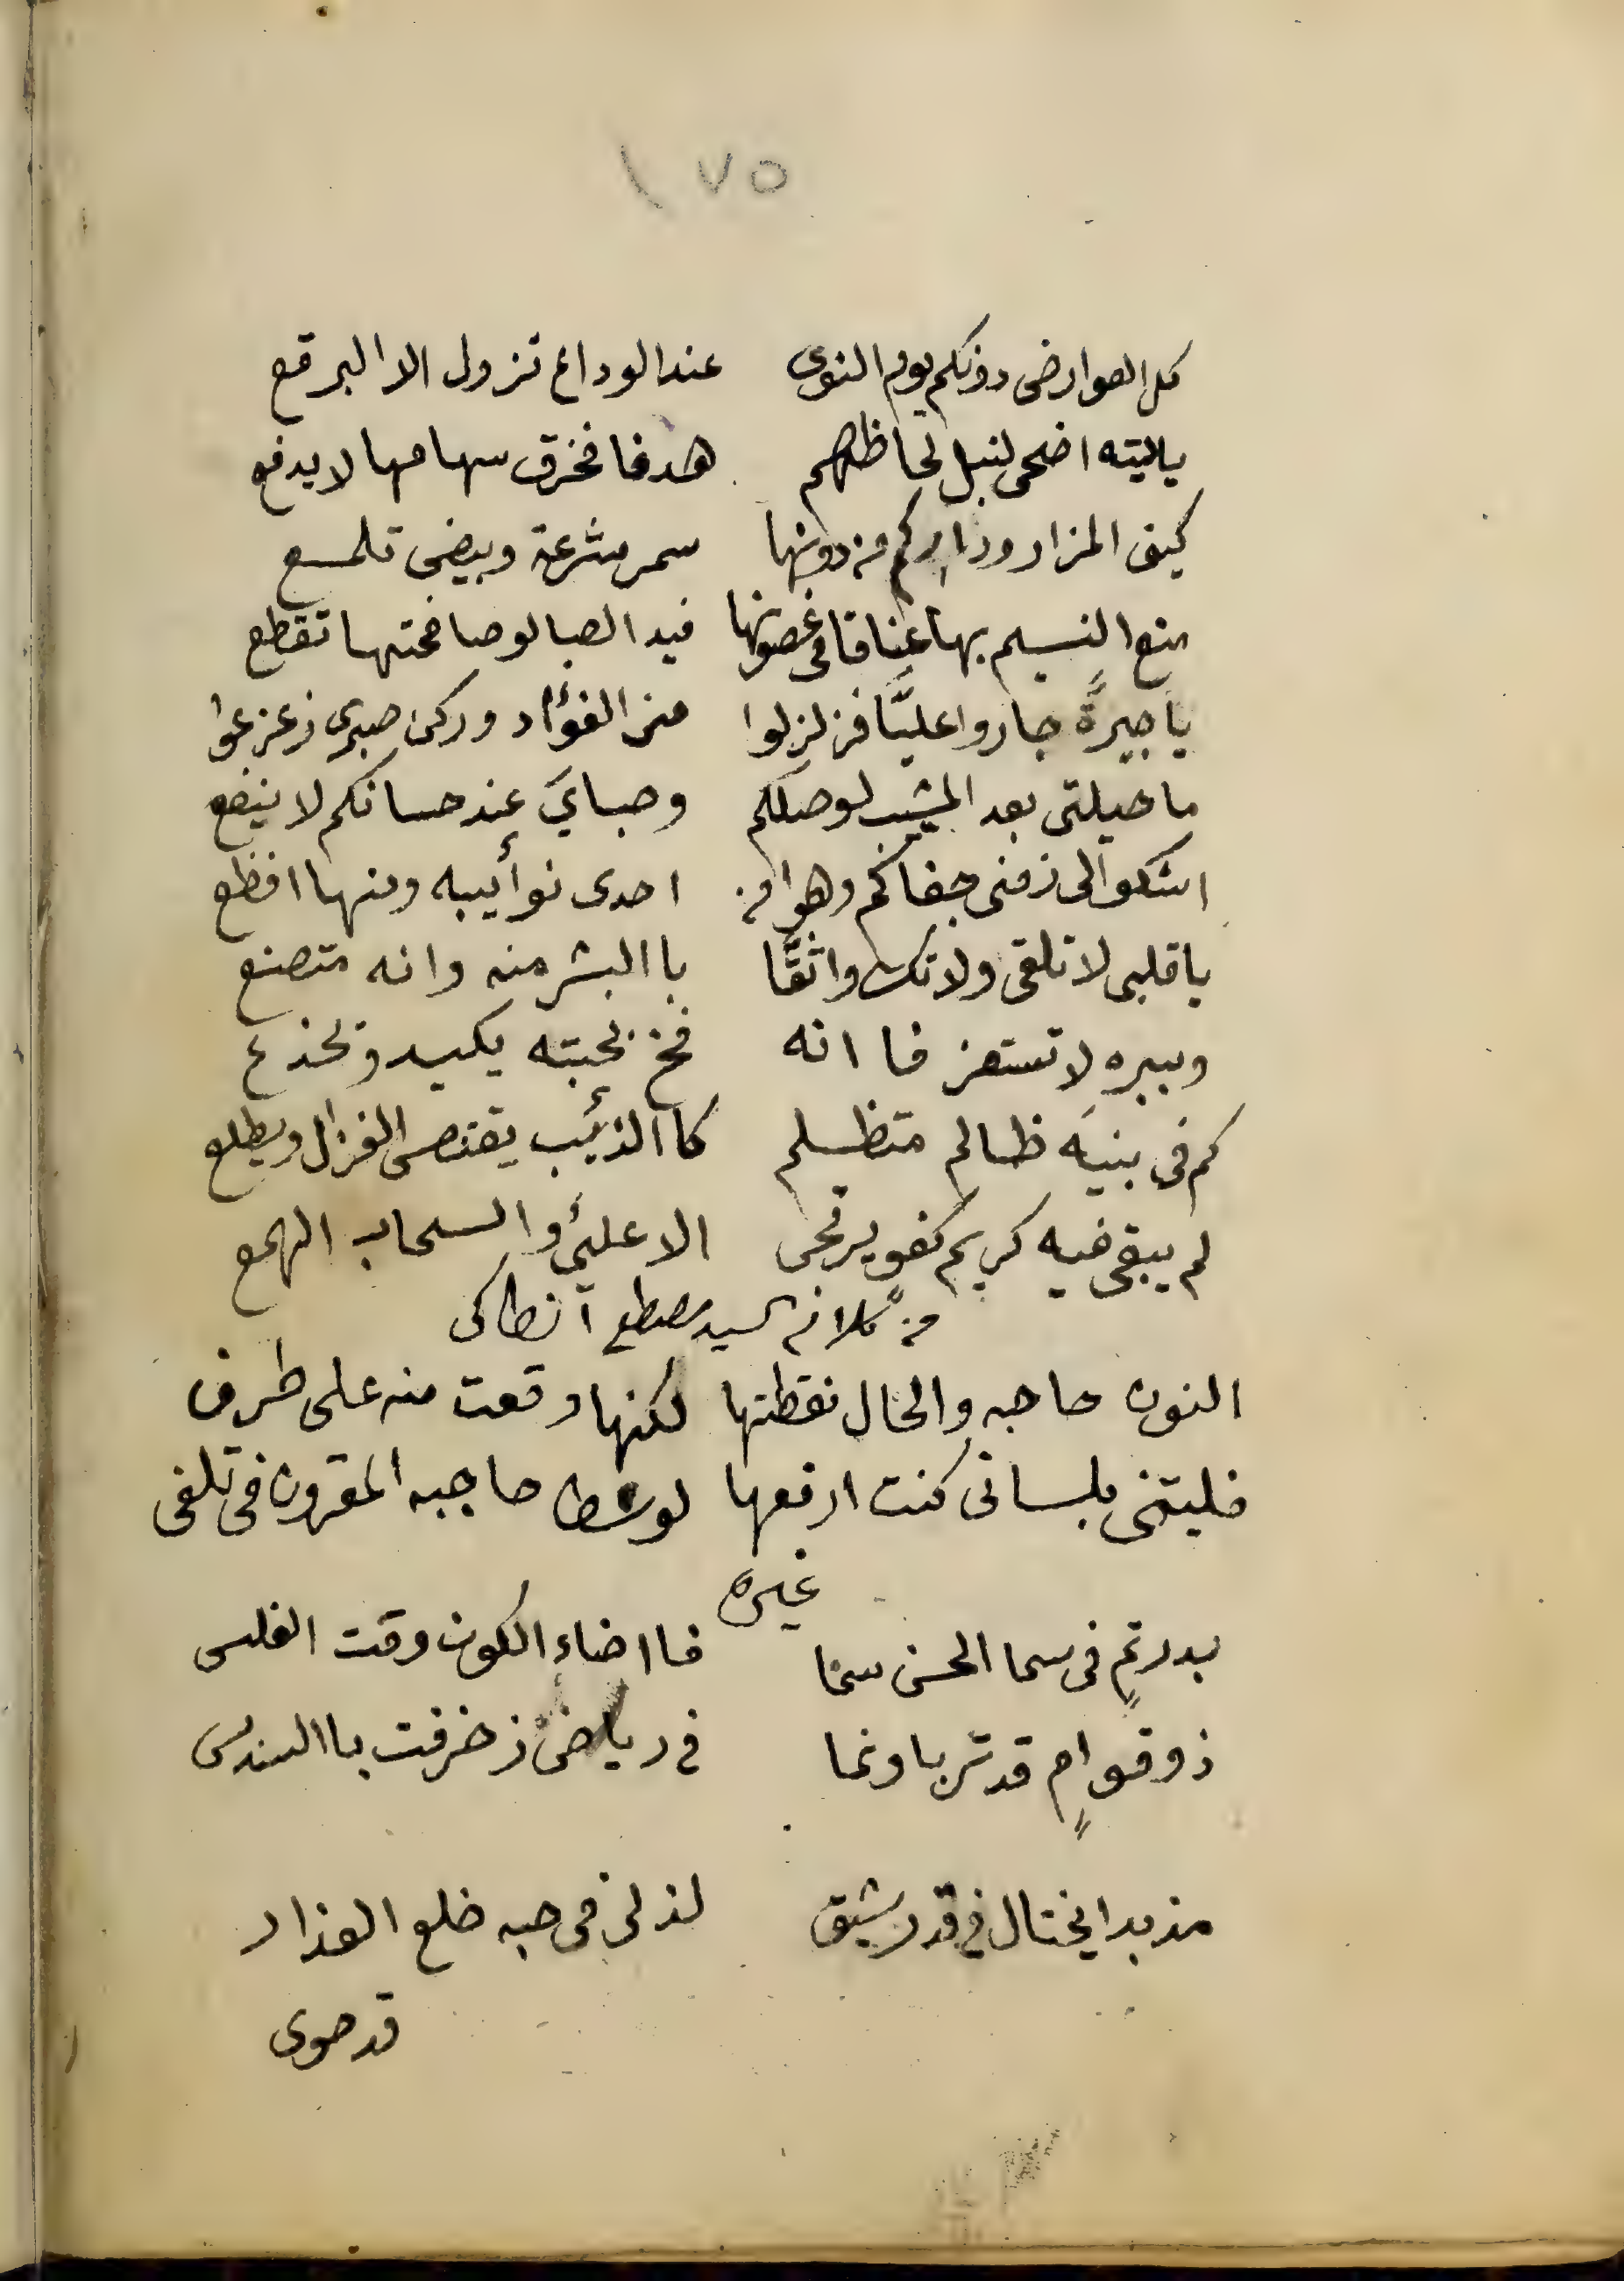 ١٧٥
كل العوارض دونكم يوم النوى عند الوداع تزول الا البرقع
ياليته اضحى لنبل لحاظهم هدفا فخرق سهامها لا يدفع
كيف المزار وداركم من دونها سمر مشرعة وبيض تلمع
منع النسيم بها عناقا في غصونها فيد الصبا لو صافحتها تقطع
يا جيرةً جاروا عليّا فزلزلوا منى الفؤاد وركن صبرى زعزعوا
ما حيلتى بعد المشيب لوصلكم وصباىَ عند حسانكم لا ينفع
اشكوا الى زمنى جفاكم وهو من احدى نوأيبه ومنها افظع
يا قلبى لا تلقى ولا تك واثقًا با البشر منه وانه متصنع
وببره لا تستعز فا انه فخ بحبته يكيد ويخدع
كم فى بنيَه ظالم متظلم كا الذئيب يقتنص الغزال ويطلع
لم يبقى فيه كريم كفوٍ يرتجى الا عليٌ والسحاب الهمع
من كلام السيد مصطفى انطاكى
النون حاجبه والخال نقطتها لكنها وقعت منه على طرف
فليتنى بلسانى كنت ارفعها لوسط حاجبه المقرون فى تلفى
غيره
بدر تمٍ فى سما الحسن سما فا اضاء الكون وقت الغلس
ذو قوامٍ قد تربا ونما فى رياض زخرفت با السندس
مذ بدا يختال فى قد رشيق لذ لى فى حبه خلع العذار
قد حوى